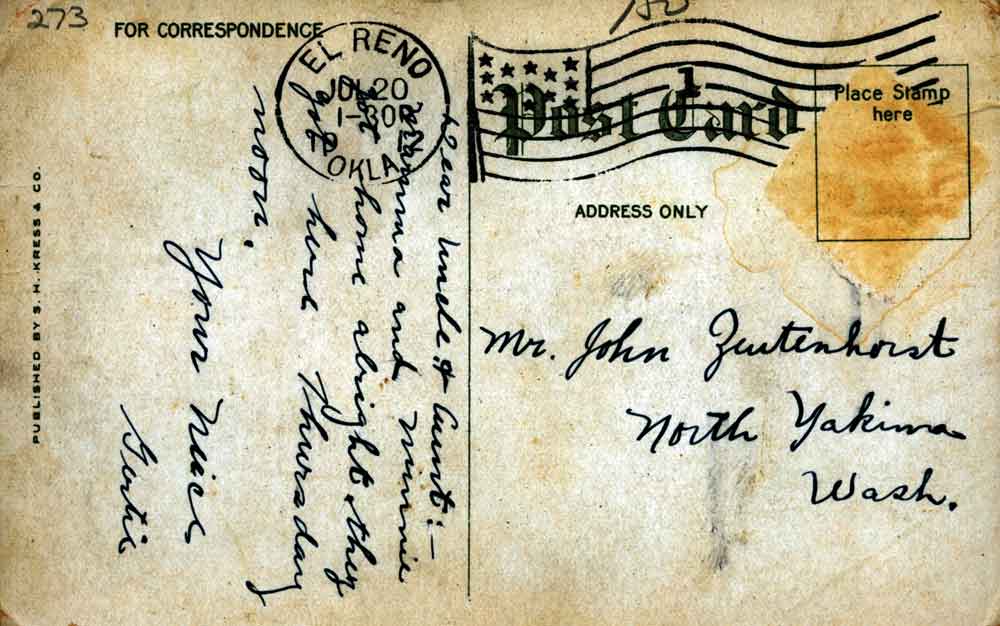 273
FOR CORRESPONDENCE
EL RENO
JUL 20
1-30P
OKLA.
1
Post Card
Place Stamp
here
ADDRESS ONLY
Dear Uncle & Aunt:—
Mamma and Minnie
got home alright they
got here Thursday
noon.
Your Niece
Gertie
Mr. John Zeutenhorst
North Yakima
Wash.
PUBLISHED BY S. H. KRESS & CO.